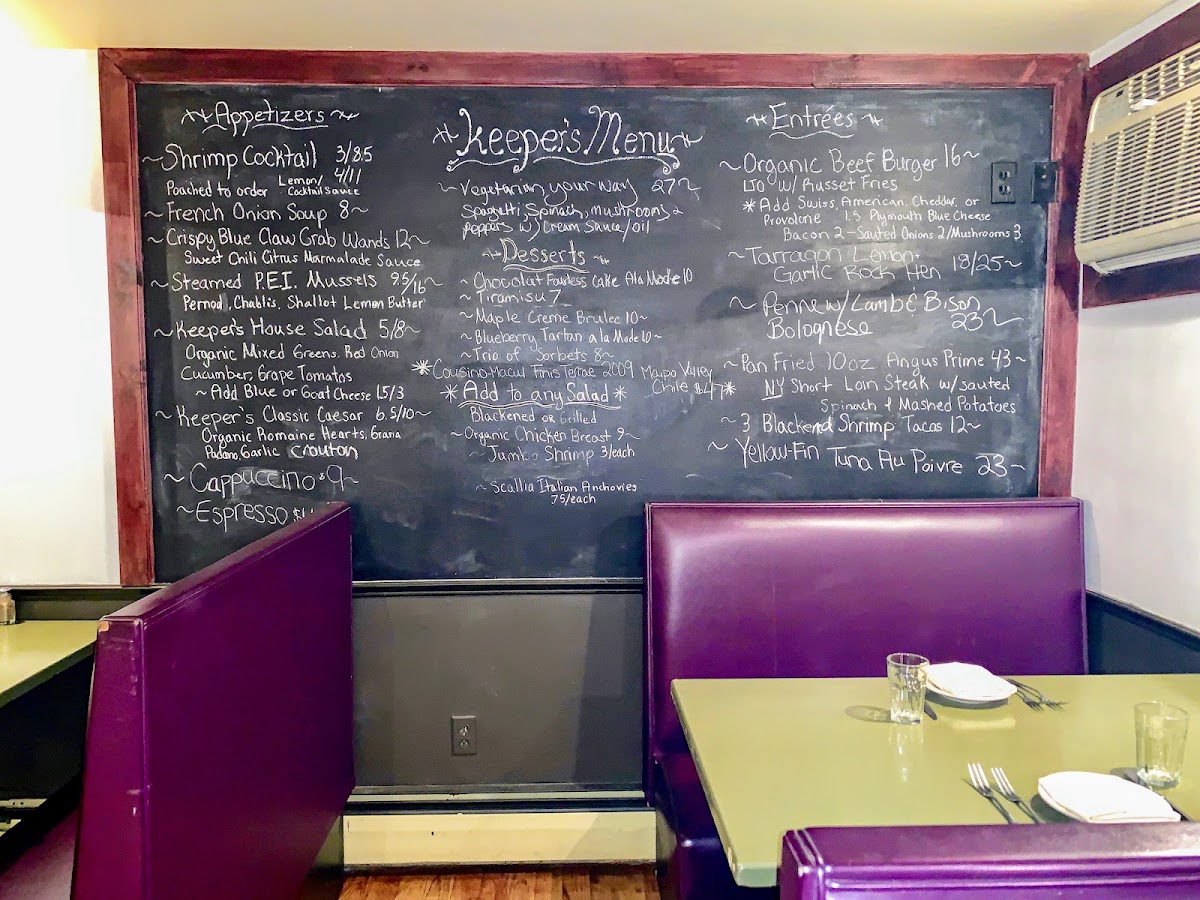 Appetizers
Shrimp Cocktail 3/8.5
4/11
Poached to order Lemon/
Cocktail sauce
French Onion Soup 8~
~Crispy Blue Claw Crab Wands 12~
Sweet Chili Citrus Marmalade Sauce
~Steamed P.E.I. Mussels 9.5/16~
Pernod, Chablis, Shallot Lemon Butter
~Keeper's House Salad 5/8~
Organic Mixed Greens, Red Onion
Cucumber, Grape Tomatos
~Add Blue or Goat Cheese 1.5/3
~Keeper's Classic Caesar 6.5/10~
Organic Romaine Hearts, Grana
Padano, Garlic crouton
~Cappuccino $9~
~Espresso
Keeper's Menu
~Vegetarian your way 27~
Spagetti, Spinach, mushrooms &
peppers w/ Cream Sauce/oil
~Desserts~
~Chocolat Flourless Cake Ala Mode 10
~Tiramisu 7
~Maple Creme Brulee 10~
~Blueberry Tartan a la Mode 10~
~Trio of Sorbets 8~
*Cousino-Macul Finis Terrae 2009 Maipo Valley
Chile $47*
*Add to any Salad*
Blackened or Grilled
~Organic Chicken Breast 9~
~Jumbo Shrimp 3/each
~Scallia Italian Anchovies
.75/each
Entrées
~Organic Beef Burger 16~
LTO w/ Russet Fries
*Add Swiss, American, Cheddar, or
Provolone 1.5 Plymouth Blue Cheese
Bacon 2-Sauted Onions 2/Mushrooms 3
~Tarragon Lemon+
Garlic Rock Hen 18/25~
~Penne w/ Lamb & Bison
Bolognese 23~
~Pan Fried 10oz Angus Prime 43~
NY Short Loin Steak w/ sauted
Spinach & Mashed Potatoes
~3 Blackend Shrimp Tacos 12~
~Yellow-Fin Tuna Au Poivre 23~